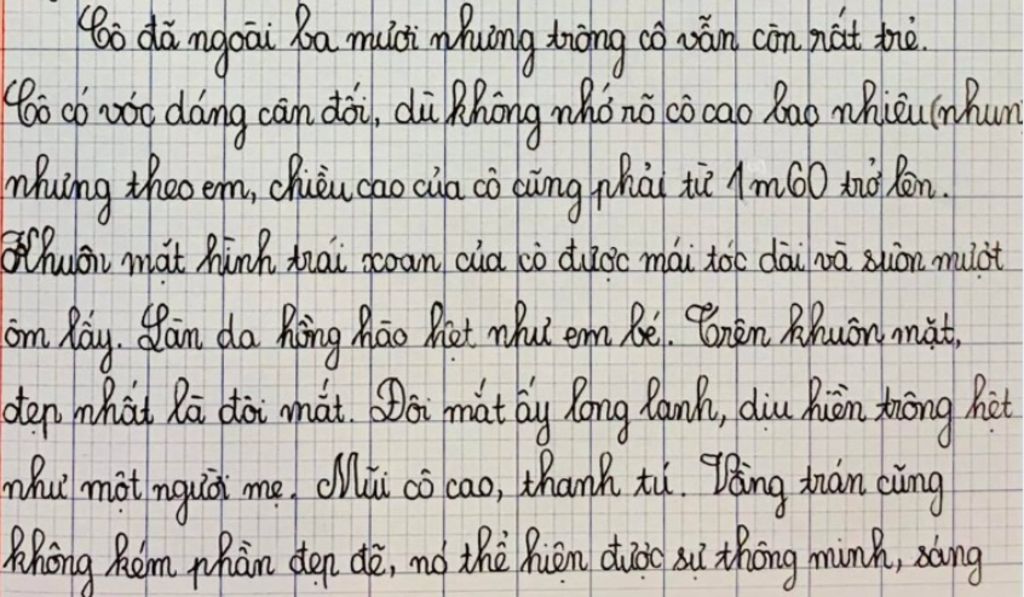 Cô đã ngoài ba mươi nhưng trông cô vẫn còn rất trẻ.
Cô có vóc dáng cân đối, dù không nhớ rõ cô cao bao nhiêu (nhưn
nhưng theo em, chiều cao của cô cũng phải từ 1m60 trở lên.
Khuôn mặt hình trái xoan của cô được mái tóc dài và suôn mượt
ôm lấy. Làn da hồng hào hệt như em bé. Trên khuôn mặt,
đẹp nhất là đôi mắt. Đôi mắt ấy long lanh, dịu hiền trông hệt
như một người mẹ. Mũi cô cao, thanh tú. Vầng trán cũng
không kém phần đẹp đẽ, nó thể hiện được sự thông minh, sáng